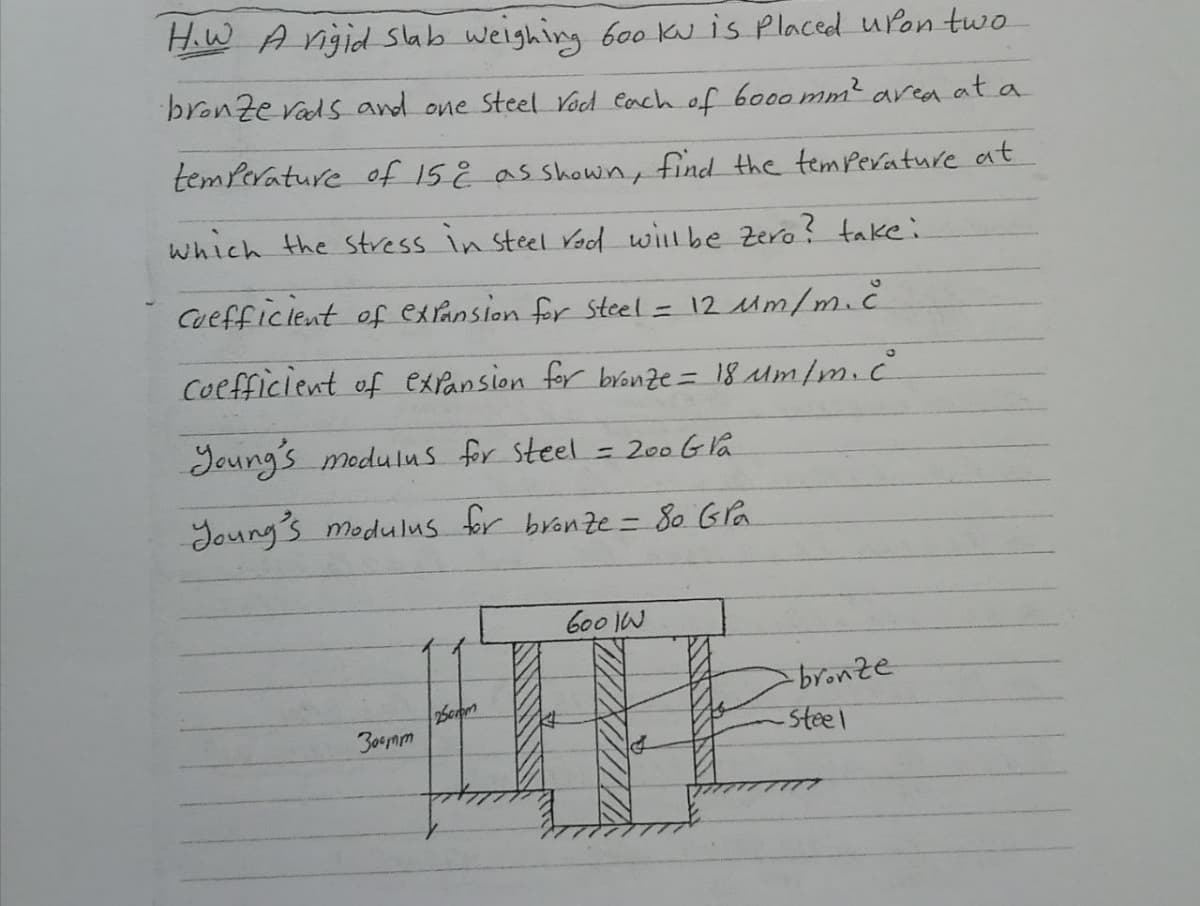 H.W A rigid slab weighing 600 kN is placed upon two
bronze rods and one steel rod each of 6000 mm² area at a
temperature of 15 °C as shown, find the temperature at
which the stress in steel rod will be zero? take:
coefficient of expansion for steel = 12 µm/m.C°
coefficient of expansion for bronze = 18 µm/m.C°
Young's modulus for steel = 200 GPa
Young's modulus for bronze = 80 GPa
600 kN
bronze
250mm
steel
300mm